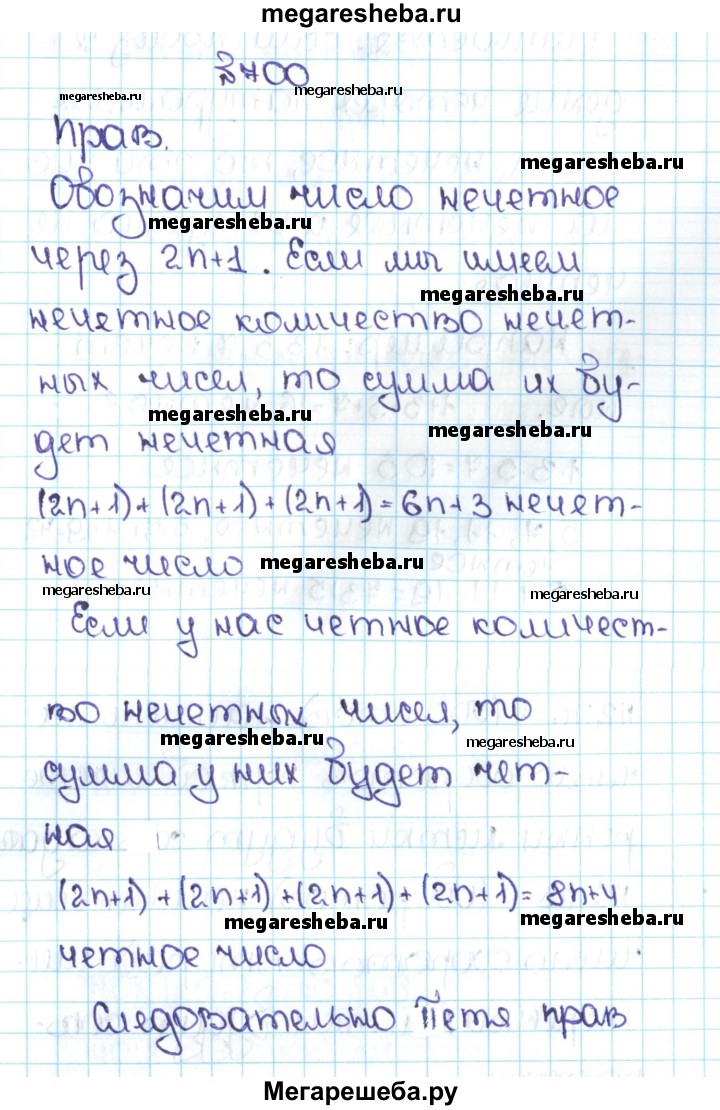 megaresheba.ru
№700
megaresheba.ru
megaresheba.ru
прав.
megaresheba.ru
Обозначим число нечетное
megaresheba.ru
через 2n+1. Если мы имеем
megaresheba.ru
нечетное количество нечет-
ных чисел, то сумма их бу-
megaresheba.ru
megaresheba.ru
дет нечетная
(2n+1)+(2n+1)+(2n+1)=6n+3 нечет-
ное число
megaresheba.ru
megaresheba.ru
megaresheba.ru
Если у нас четное количест-
во нечетных чисел, то
megaresheba.ru
megaresheba.ru
сумма у них будет чет-
ная
(2n+1)+(2n+1)+(2n+1)+(2n+1)=8n+4
megaresheba.ru
megaresheba.ru
четное число
Следовательно Петя прав
Мегарешеба.ру